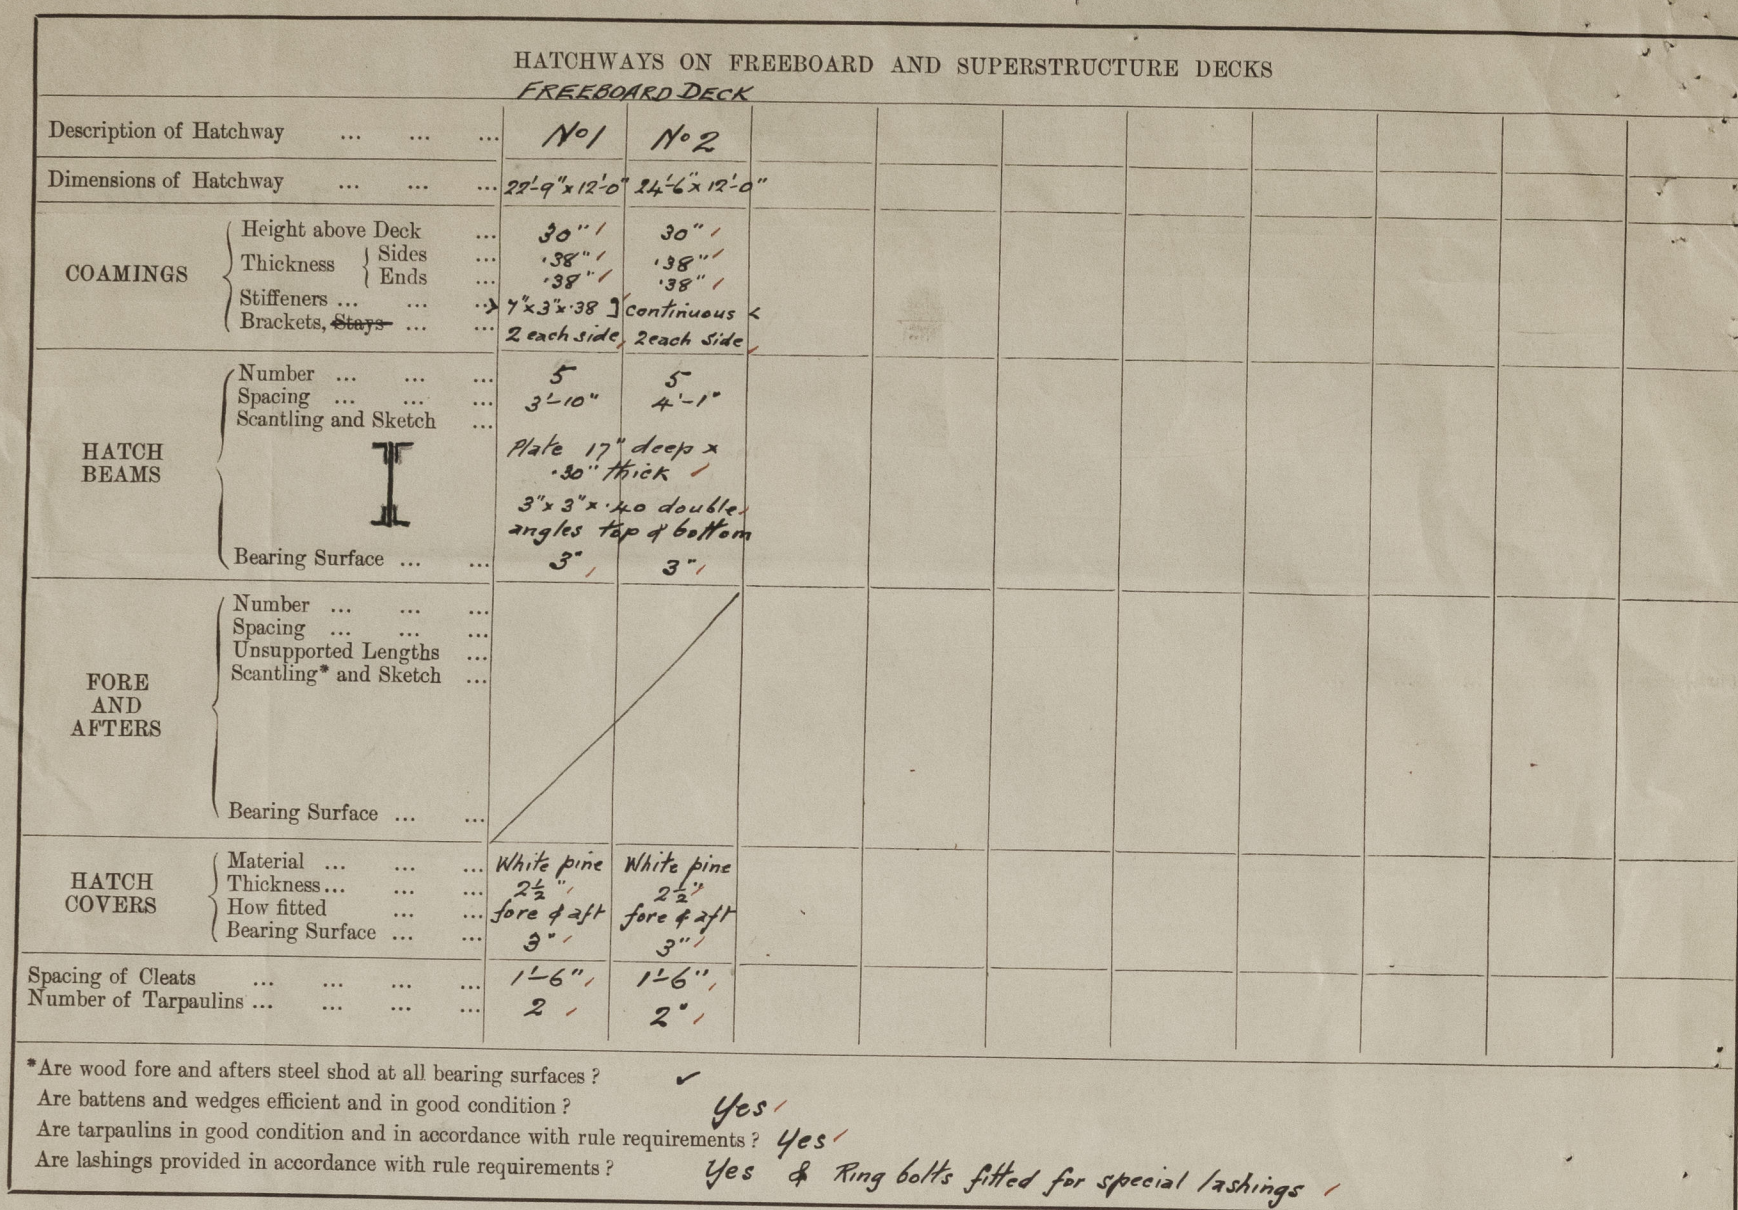 HATCHWAYS ON FREEBOARD AND SUPERSTRUCTURE DECKS
FREEBOARD DECK
Description of Hatchway ... ... ... No 1 No 2
Dimensions of Hatchway ... ... ... 22'-9" x 12'-0" 24'-6" x 12'-0"
COAMINGS
Height above Deck ... 30" 30"
Thickness
Sides ... .38" .38"
Ends ... .38" .38"
Stiffeners ... ... ... 7" x 3" x .38 ] continuous <
Brackets, Stays ... ... 2 each side, 2 each side
HATCH BEAMS
Number ... ... ... 5 5
Spacing ... ... ... 3'-10" 4'-1"
Scantling and Sketch ...
Plate 17" deep x
.30" thick
3" x 3" x .40 double
angles top & bottom
Bearing Surface ... ... 3" 3"
FORE AND AFTERS
Number ... ... ...
Spacing ... ... ...
Unsupported Lengths ...
Scantling* and Sketch ...
Bearing Surface ... ...
HATCH COVERS
Material ... ... ... White pine White pine
Thickness... ... ... 2½" 2½"
How fitted ... ... fore & aft fore & aft
Bearing Surface ... ... 3" 3"
Spacing of Cleats ... ... ... ... 1'-6" 1'-6"
Number of Tarpaulins ... ... ... ... 2 2"
*Are wood fore and afters steel shod at all bearing surfaces ? ✓
Are battens and wedges efficient and in good condition ? Yes
Are tarpaulins in good condition and in accordance with rule requirements ? Yes
Are lashings provided in accordance with rule requirements ? Yes & Ring bolts fitted for special lashings